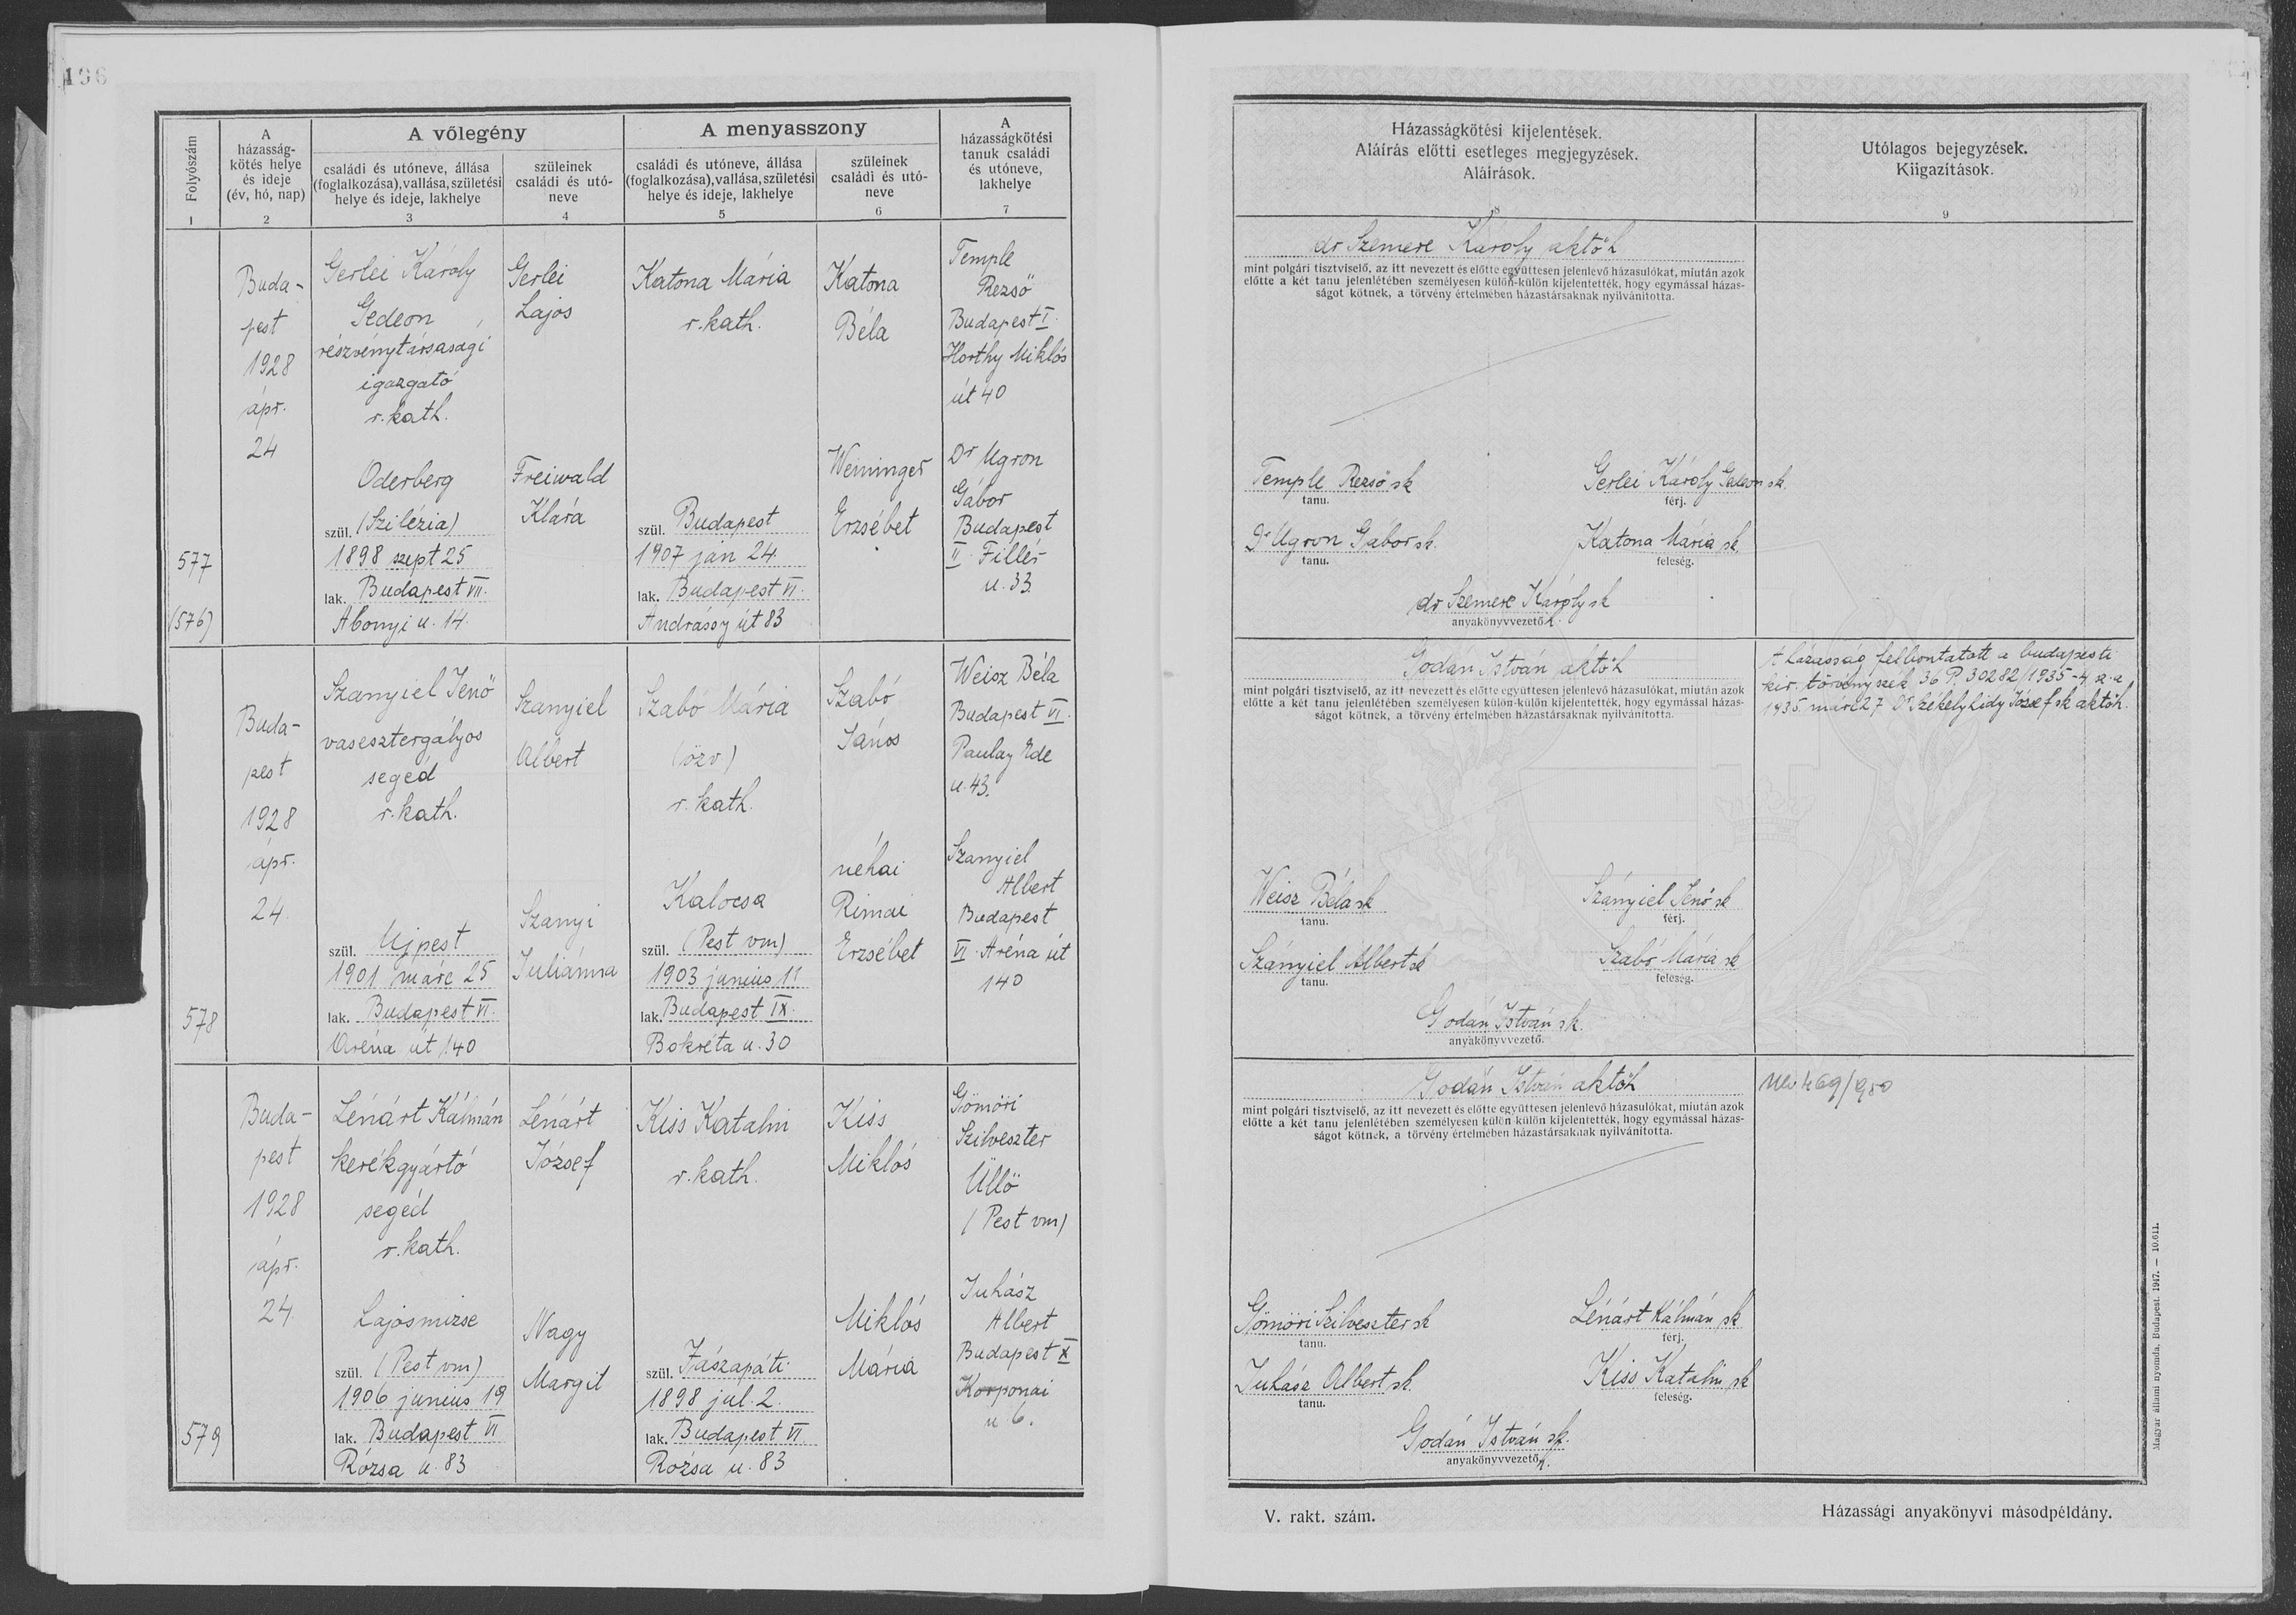 196
Folyószám
1
A
házasság-
kötés helye
és ideje
(év, hó, nap)
2
A vőlegény
családi és utóneve, állása
(foglalkozása), vallása, születési
helye és ideje, lakhelye
3
szüleinek
családi és utó-
neve
4
A menyasszony
családi és utóneve, állása
(foglalkozása), vallása, születési
helye és ideje, lakhelye
5
szüleinek
családi és utó-
neve
6
A
házasságkötési
tanuk családi
és utóneve,
lakhelye
7
577
(576)
Buda-
pest
1928
ápr.
24
Gerlei Károly
Gedeon
részvénytársasági
igazgató
r. kath.
Oderberg
szül. (Szilézia)
1898 szept 25
lak. Budapest VII.
Abonyi u. 14.
Gerlei
Lajos
Freiwald
Klára
Katona Mária
r. kath.
szül. Budapest
1907 jan 24
lak. Budapest VI.
Andrássy út 83
Katona
Béla
Weininger
Erzsébet
Temple
Rezső
Budapest I.
Horthy Miklós
út 40
Dr Ugron
Gábor
Budapest
II. Fillér
u. 33.
578
Buda-
pest
1928
ápr.
24.
Szanyiel Jenő
vasesztergályos
segéd
r. kath.
szül. Ujpest
1901 márc 25
lak. Budapest VI.
Aréna út 140
Szanyiel
Albert
Szanyi
Juliánna
Szabó Mária
(özv)
r. kath.
Kalocsa
szül. (Pest vm)
1903 junius 11
lak. Budapest IX.
Bokréta u. 30
Szabó
János
néhai
Rimai
Erzsébet
Weisz Béla
Budapest VI.
Paulay Ede
u. 43.
Szanyiel
Albert
Budapest
VI. Aréna út
140
579
Buda-
pest
1928
ápr.
24.
Lénárt Kálmán
kerékgyártó
segéd
r. kath.
Lajosmizse
szül. (Pest vm)
1906 junius 19
lak. Budapest VI
Rózsa u. 83
Lénárt
József
Nagy
Margit
Kiss Katalin
r. kath.
szül. Jászapáti
1898 jul. 2.
lak. Budapest VI.
Rózsa u. 83
Kiss
Miklós
Miklós
Mária
Gömöri
Szilveszter
Üllő
(Pest vm)
Juhász
Albert
Budapest X
Korponai
u 6.
Házasságkötési kijelentések.
Aláírás előtti esetleges megjegyzések.
Aláírások.
8
Utólagos bejegyzések.
Kiigazítások.
9
dr Szemere Károly aktöh
mint polgári tisztviselő, az itt nevezett és előtte együttesen jelenlevő házasulókat, miután azok
előtte a két tanu jelenlétében személyesen külön-külön kijelentették, hogy egymással házas-
ságot kötnek, a törvény értelmében házastársaknak nyilvánította.
Temple Rezső sk
tanu.
Gerlei Károly Gedeon sk.
férj.
Dr Ugron Gábor sk.
tanu.
Katona Mária sk.
feleség.
dr Szemere Károly sk
anyakönyvvezető h.
Godán István aktöh
mint polgári tisztviselő, az itt nevezett és előtte együttesen jelenlevő házasulókat, miután azok
előtte a két tanu jelenlétében személyesen külön-külön kijelentették, hogy egymással házas-
ságot kötnek, a törvény értelmében házastársaknak nyilvánította.
A házasság felbontatott a budapesti
kir. törvényszék 36 P. 30282/1935-4 sz. a
1935. márc 27 Dr Székelyhidy József sk aktöh.
Weisz Béla sk
tanu.
Szányiel Jenő sk
férj.
Szányiel Albert sk
tanu.
Szabó Mária sk
feleség.
Godán István sk.
anyakönyvvezető.
Godán István aktöh
mint polgári tisztviselő, az itt nevezett és előtte együttesen jelenlevő házasulókat, miután azok
előtte a két tanu jelenlétében személyesen külön-külön kijelentették, hogy egymással házas-
ságot kötnek, a törvény értelmében házastársaknak nyilvánította.
469/950
Gömöri Szilveszter sk
tanu.
Lénárt Kálmán sk
férj.
Juhász Albert sk.
tanu.
Kiss Katalin sk
feleség.
Godán István sk.
anyakönyvvezető h.
V. rakt. szám.
Házassági anyakönyvi másodpéldány.
Magyar állami nyomda, Budapest. 1947. — 10.611.